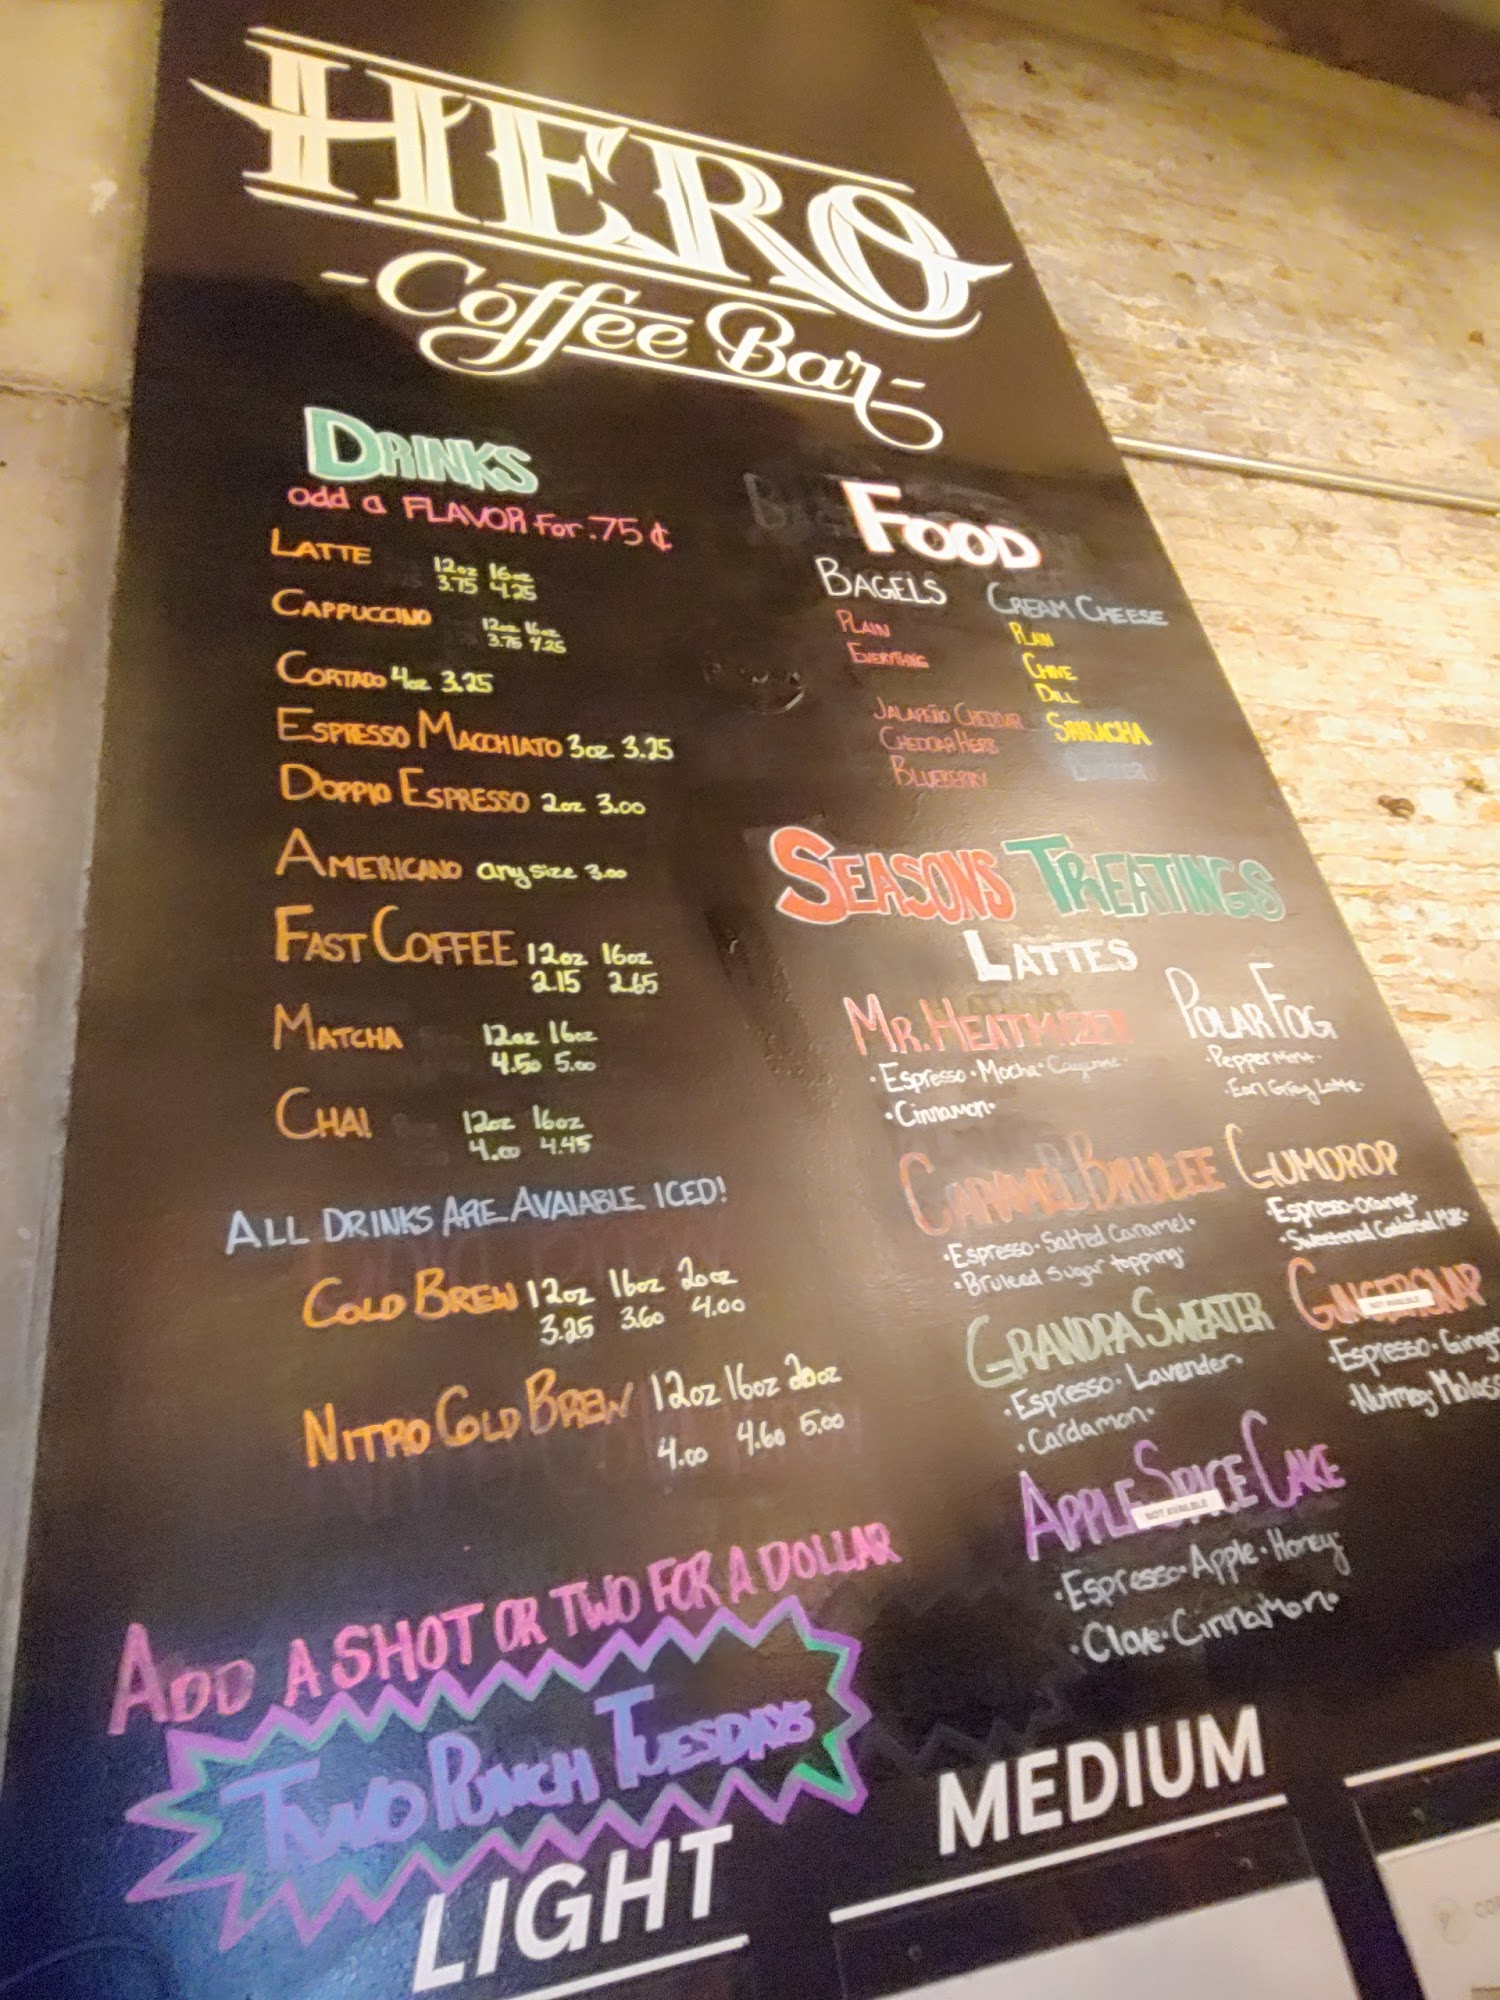 HERO
-Coffee Bar-
DRINKS
add a FLAVOR for .75¢
LATTE 12oz 16oz
3.75 4.25
CAPPUCCINO 12oz 16oz
3.75 4.25
CORTADO 4oz 3.25
ESPRESSO MACCHIATO 3oz 3.25
DOPPIO ESPRESSO 2oz 3.00
AMERICANO any size 3.00
FAST COFFEE 12oz 16oz
2.15 2.65
MATCHA 12oz 16oz
4.50 5.00
CHAI 12oz 16oz
4.00 4.45
ALL DRINKS ARE AVAIABLE ICED!
COLD BREW 12oz 16oz 20oz
3.25 3.60 4.00
NITRO COLD BREW 12oz 16oz 20oz
4.00 4.60 5.00
ADD A SHOT OR TWO FOR A DOLLAR
TWO PUNCH TUESDAYS
FOOD
BAGELS
PLAIN
EVERYTHING
JALAPEÑO CHEDDAR
CHEDDAR HERB
BLUEBERRY
CREAM CHEESE
PLAIN
CHIVE
DILL
SRIRACHA
SEASONS TREATINGS
LATTES
MR. HEATMIZER
·Espresso·Mocha·Cayenne·
·Cinnamon·
POLAR FOG
·Peppermint·
·Earl Grey Latte·
CARAMEL BRULEE
·Espresso·Salted Caramel·
·Bruleed Sugar topping·
GUMDROP
·Espresso·Orange·
·Sweetened Condensed Milk·
GRANDPA SWEATER
·Espresso·Lavender·
·Cardamon·
GINGERSNAP
NOT AVAILABLE
·Espresso·Ginger
·Nutmeg·Molass
APPLE SPICE CAKE
NOT AVAILBLE
·Espresso·Apple·Honey·
·Clove·Cinnamon·
LIGHT
MEDIUM